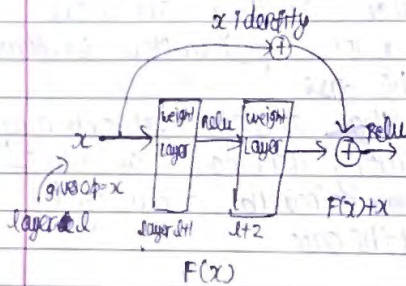 x identity
+
weight layer
relu
weight layer
x
+
relu
gives op=x
F(x)+x
layer l
layer l+1
l+2
F(x)